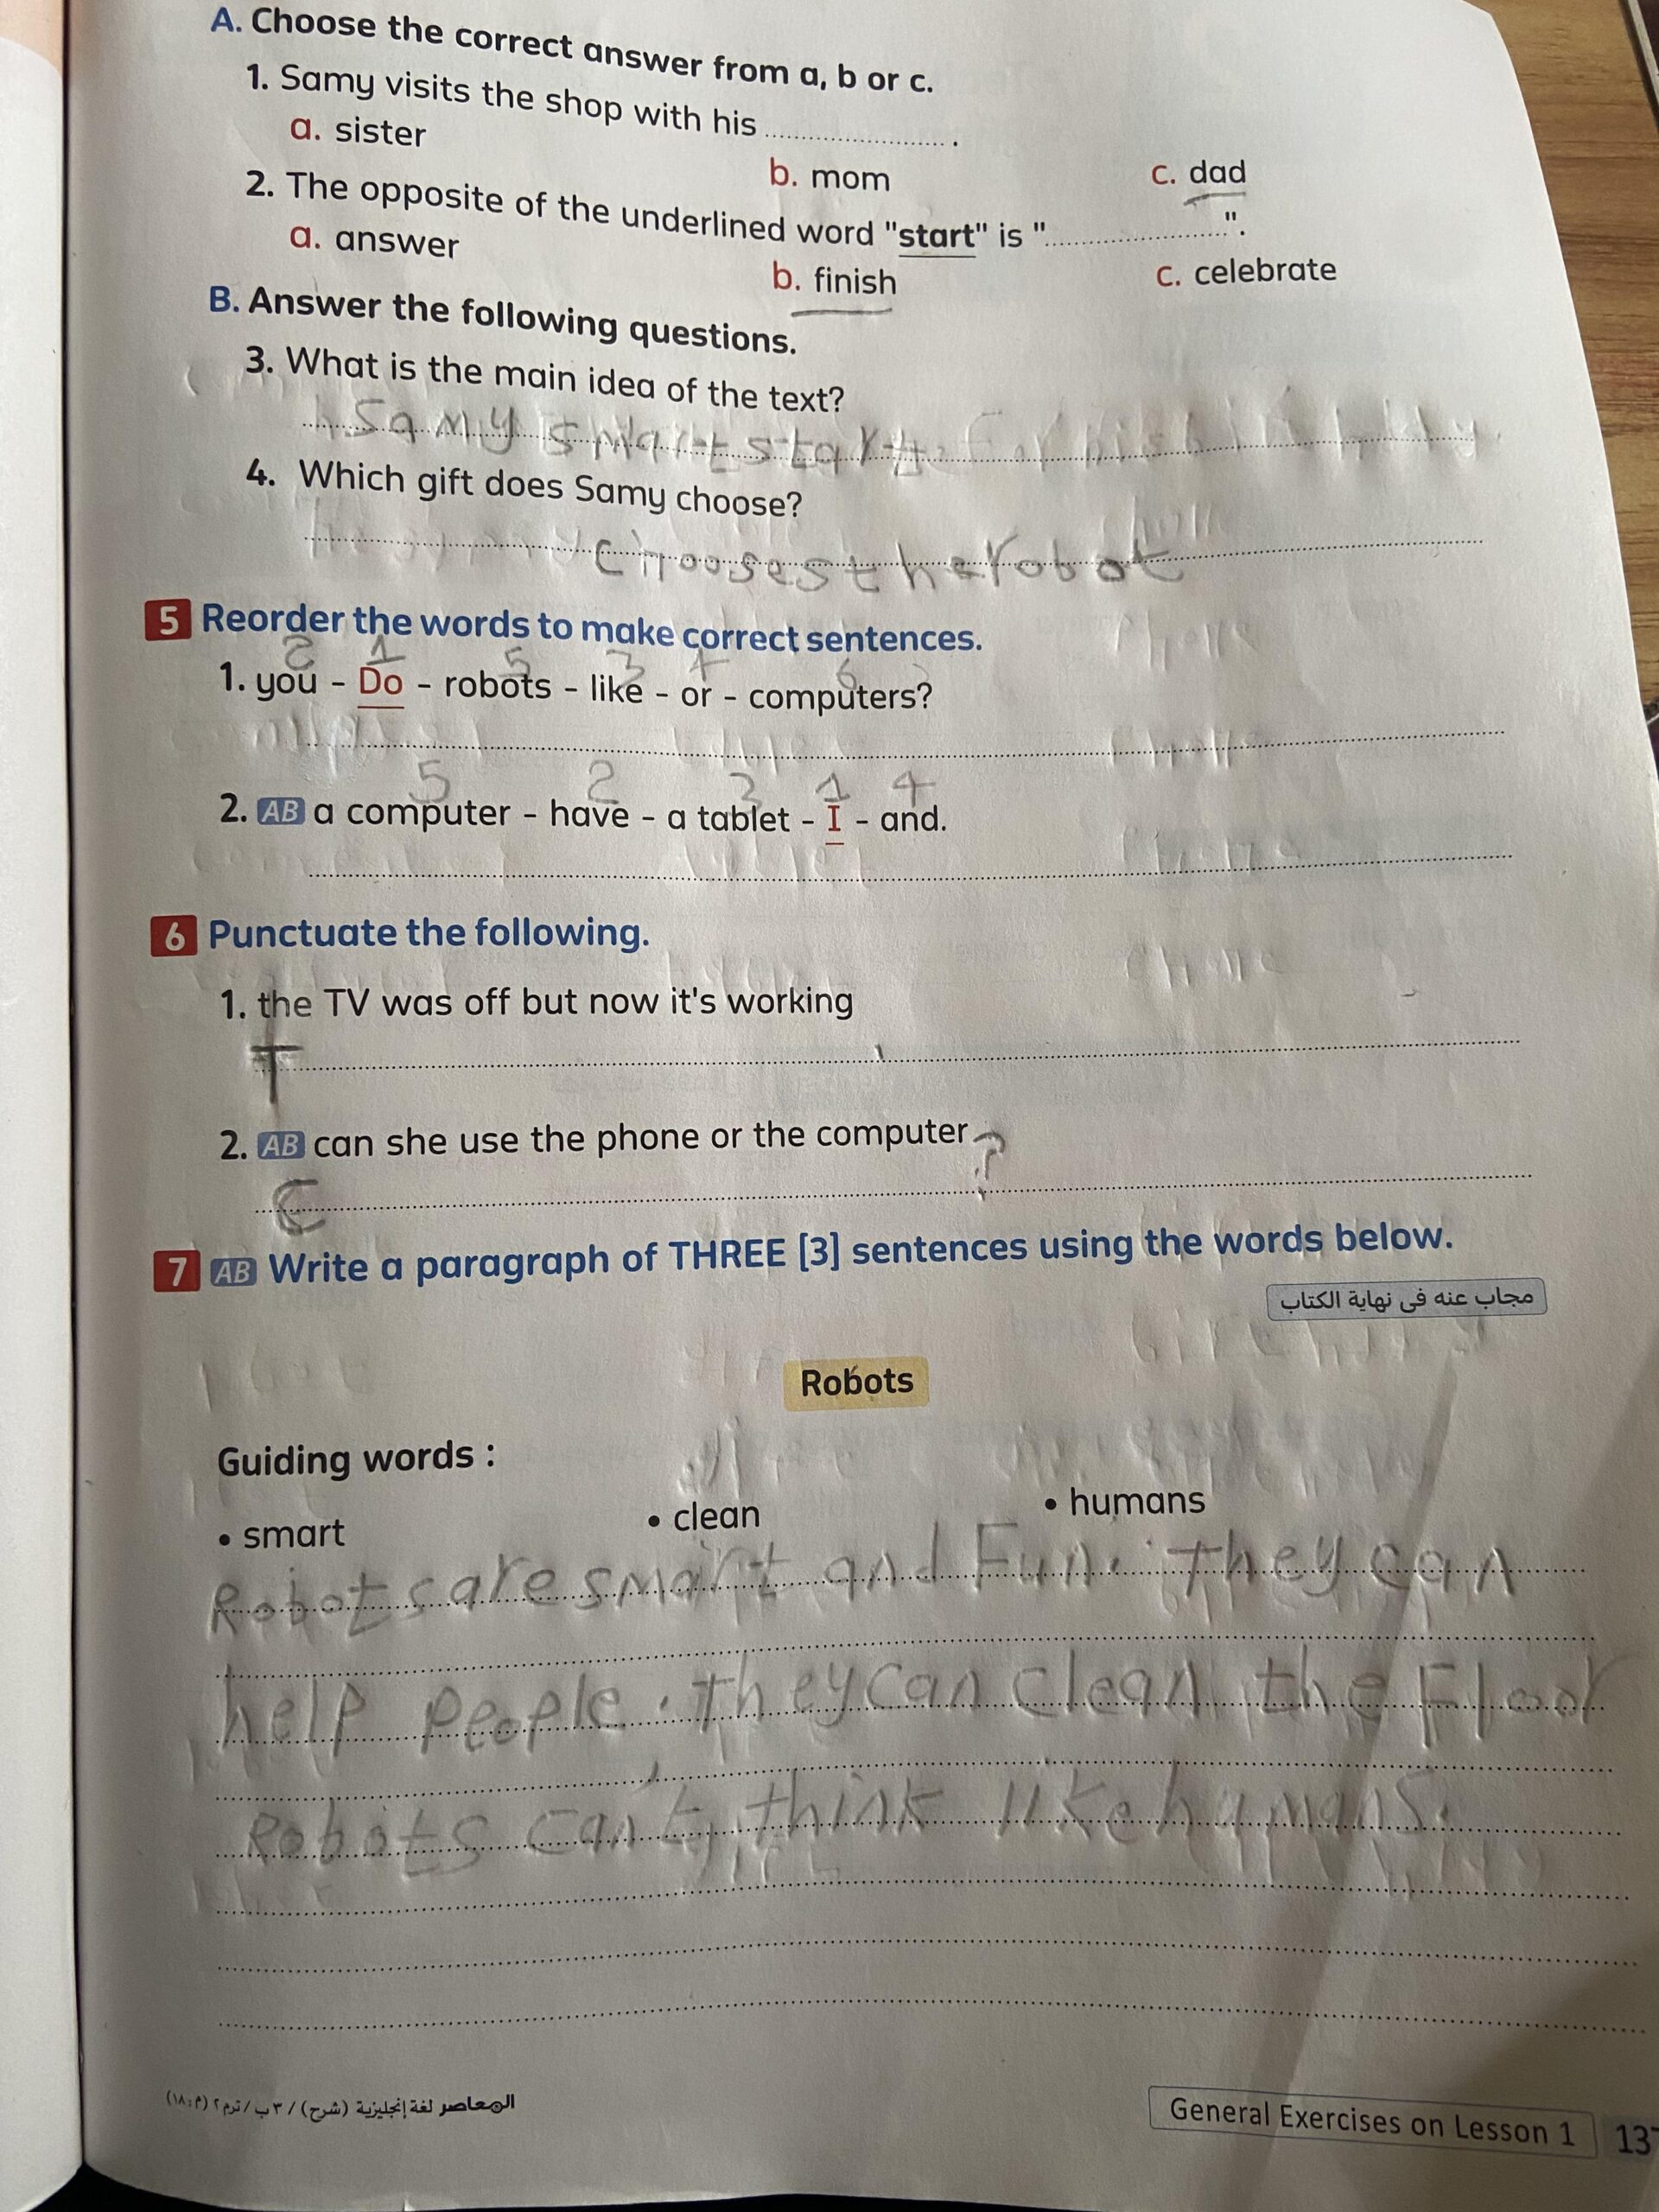 A. Choose the correct answer from a, b or c.
1. Samy visits the shop with his .................... .
a. sister b. mom c. dad
2. The opposite of the underlined word "start" is "....................".
a. answer b. finish c. celebrate
B. Answer the following questions.
3. What is the main idea of the text?
Samy
4. Which gift does Samy choose?
chooses the robot
5 Reorder the words to make correct sentences.
2 1 5 3 4 6
1. you - Do - robots - like - or - computers?
5 2 3 1 4
2. AB a computer - have - a tablet - I - and.
6 Punctuate the following.
1. the TV was off but now it's working
T
2. AB can she use the phone or the computer ?
C
7 AB Write a paragraph of THREE [3] sentences using the words below.
مجاب عنه فى نهاية الكتاب
Robots
Guiding words :
• smart • clean • humans
Robots are smart and Fun. They can
help people. They can clean the Floor
Robots can't think like humans.
المعاصر لغة إنجليزية (شرح) / ٣ ب / ترم ٢ (م : ١٨)
General Exercises on Lesson 1